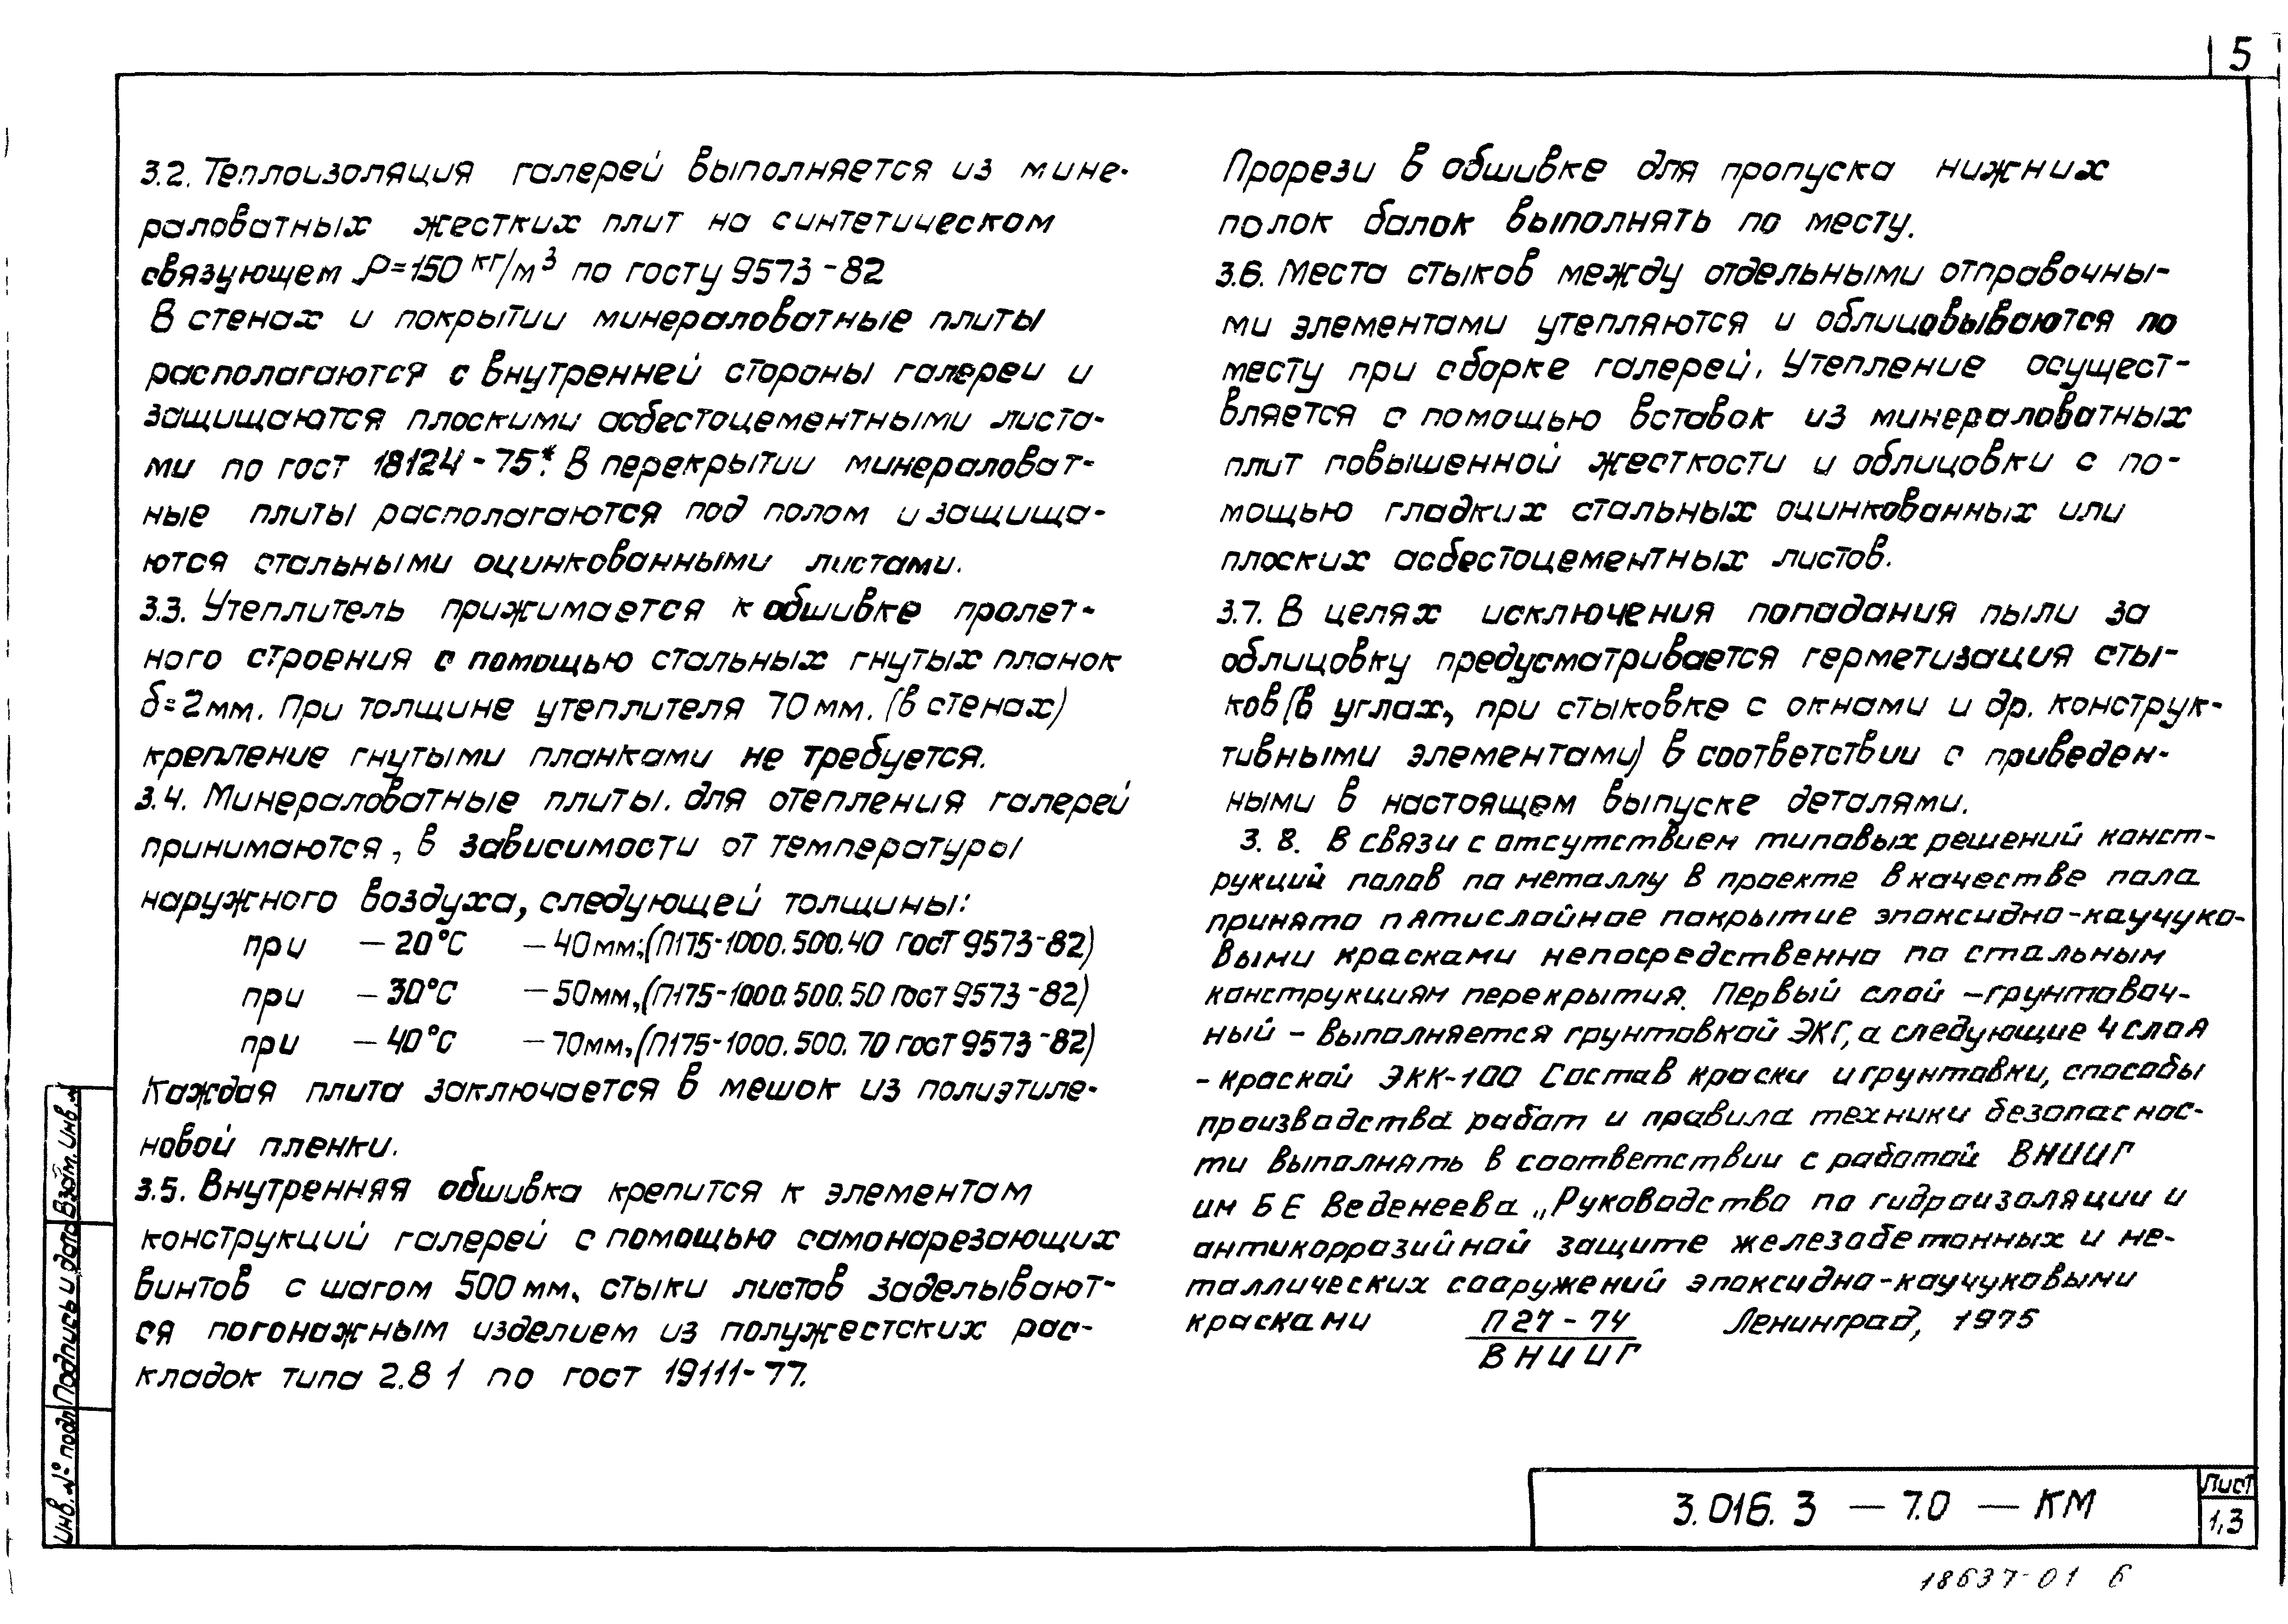 5
3.2. Теплоизоляция галерей выполняется из мине-
раловатных жестких плит на синтетическом
связующем ρ=150 кг/м³ по госту 9573-82
В стенах и покрытии минераловатные плиты
располагаются с внутренней стороны галереи и
защищаются плоскими асбестоцементными листа-
ми по гост 18124-75*. В перекрытии минераловат-
ные плиты располагаются под полом и защища-
ются стальными оцинкованными листами.
3.3. Утеплитель прижимается к обшивке пролет-
ного строения с помощью стальных гнутых планок
δ=2мм. При толщине утеплителя 70 мм. (в стенах)
крепление гнутыми планками не требуется.
3.4. Минераловатные плиты. для отепления галерей
принимаются, в зависимости от температуры
наружного воздуха, следующей толщины:
при — 20°С — 40мм; (П175-1000.500.40 гост 9573-82)
при — 30°С — 50мм, (П175-1000.500.50 гост 9573-82)
при — 40°С — 70мм, (П175-1000.500.70 гост 9573-82)
Каждая плита заключается в мешок из полиэтиле-
новой пленки.
3.5. Внутренняя обшивка крепится к элементам
конструкций галерей с помощью самонарезающих
винтов с шагом 500 мм, стыки листов заделывают-
ся погонажным изделием из полужестских рас-
кладок типа 2.8 1 по гост 19111-77.
Прорези в обшивке для пропуска нижних
полок балок выполнять по месту.
3.6. Места стыков между отдельными отправочны-
ми элементами утепляются и облицовываются по
месту при сборке галерей. Утепление осущест-
вляется с помощью вставок из минераловатных
плит повышенной жесткости и облицовки с по-
мощью гладких стальных оцинкованных или
плоских асбестоцементных листов.
3.7. В целях исключения попадания пыли за
облицовку предусматривается герметизация сты-
ков (в углах, при стыковке с окнами и др. конструк-
тивными элементами) в соответствии с приведен-
ными в настоящем выпуске деталями.
3. 8. В связи с отсутствием типовых решений конст-
рукций полов по металлу в проекте в качестве пола
принято пятислойное покрытие эпоксидно-каучуко-
выми красками непосредственно по стальным
конструкциям перекрытия. Первый слой - грунтовоч-
ный - выполняется грунтовкой ЭКГ, а следующие 4 слоя
- краской ЭКК-100 Состав краски и грунтовки, способы
производства работ и правила техники безопаснос-
ти выполнять в соответствии с работой ВНИИГ
им Б Е Веденеева „Руководство по гидроизоляции и
антикоррозийной защите железобетонных и ме-
таллических сооружений эпоксидно-каучуковыми
красками П 27 - 74 Ленинград, 1975
ВНИИГ
Инв. № подл Подпись и дата Взам. инв. №
3.016.3 — 7.0 — КМ
Лист
1,3
18637-01 6